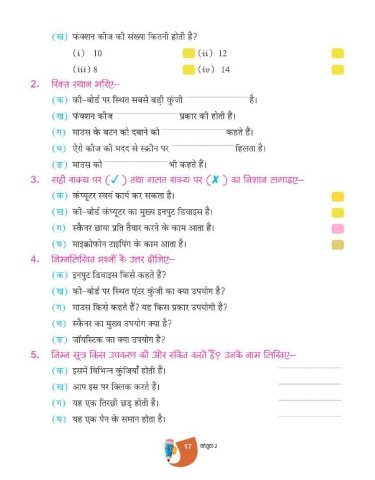 (ख) फंक्शन कीज की संख्या कितनी होती है?
(i) 10 (ii) 12
(iii) 8 (iv) 14
2. रिक्त स्थान भरिए–
(क) की-बोर्ड पर स्थित सबसे बड़ी कुंजी है।
(ख) फंक्शन कीज प्रकार की होती है।
(ग) माउस के बटन को दबाने को कहते हैं।
(घ) ऐरो कीज की मदद से स्क्रीन पर हिलता है।
(ङ) माउस को भी कहते हैं।
3. सही वाक्य पर (✓) तथा गलत वाक्य पर (✗) का निशान लगाइए–
(क) कंप्यूटर स्वयं कार्य कर सकता है।
(ख) की-बोर्ड कंप्यूटर का मुख्य इनपुट डिवाइस है।
(ग) स्कैनर छाया प्रति तैयार करने के काम आता है।
(घ) माइक्रोफोन टाइपिंग के काम आता है।
4. निम्नलिखित प्रश्नों के उत्तर दीजिए–
(क) इनपुट डिवाइस किसे कहते हैं?
(ख) की-बोर्ड पर स्थित एंटर कुंजी का क्या उपयोग है?
(ग) माउस किसे कहते हैं? यह किस प्रकार उपयोगी है?
(घ) स्कैनर का मुख्य उपयोग क्या है?
(ङ) जॉयस्टिक का क्या उपयोग है?
5. निम्न सूत्र किस उपकरण की और संकेत करते हैं? उनके नाम लिखिए–
(क) इसमें विभिन्न कुंजियाँ होती हैं।
(ख) आप इस पर क्लिक करते हैं।
(ग) यह एक तिरछी छड़ होती है।
(घ) यह एक पेन के समान होता है।
17 कंप्यूटर-2